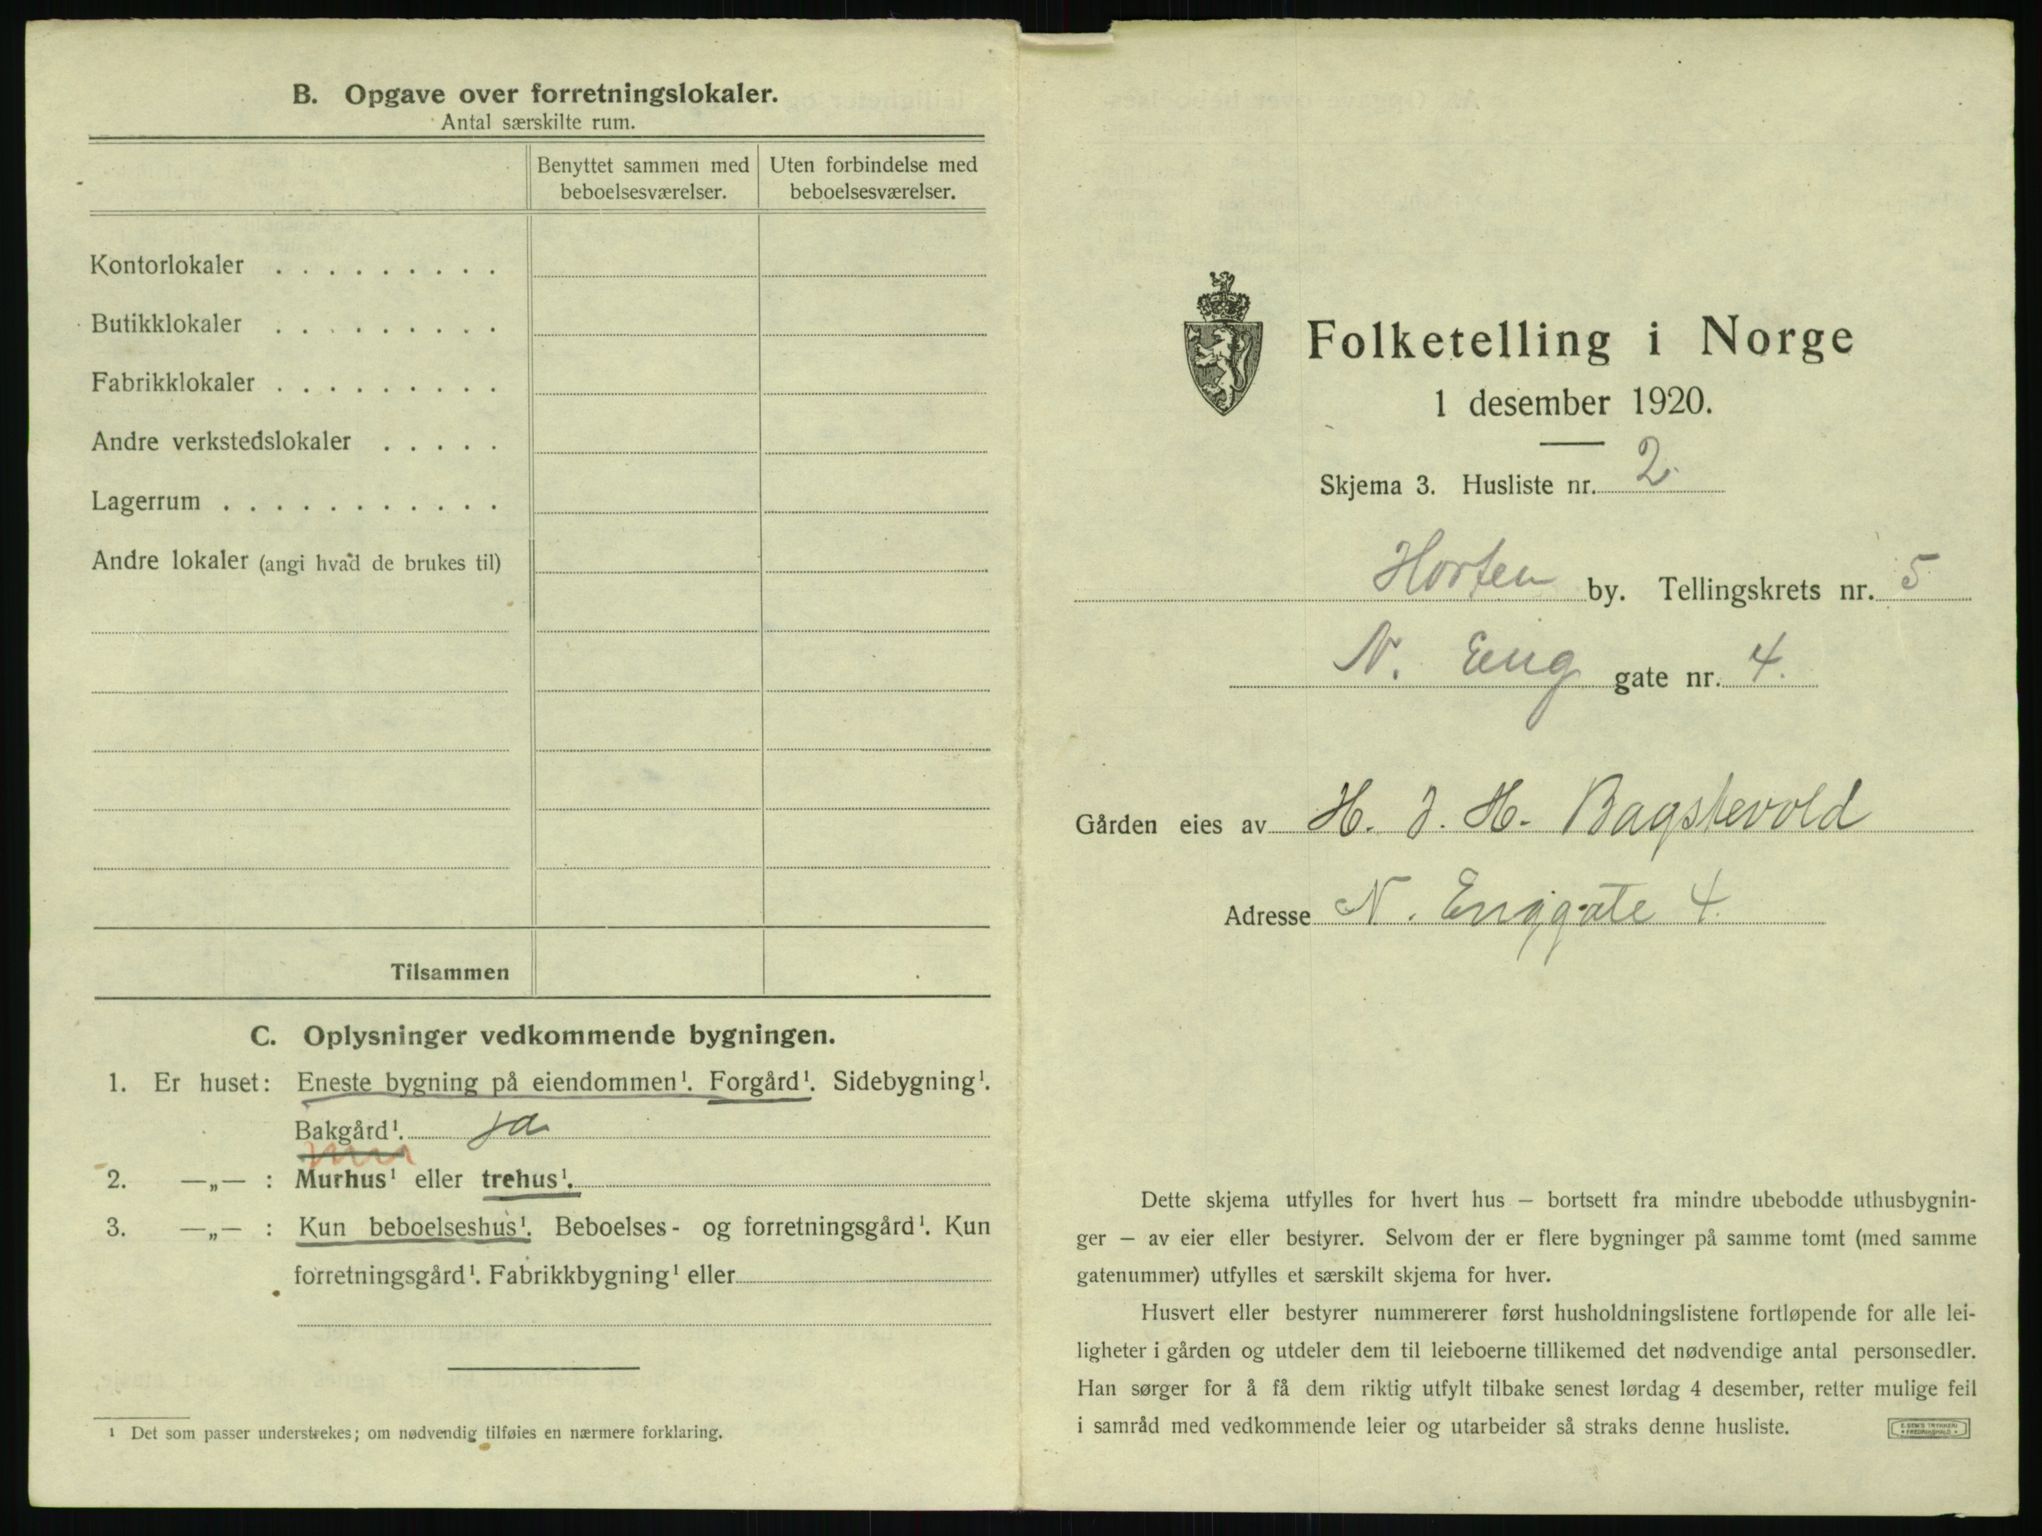 B. Opgave over forretningslokaler.
Antal særskilte rum.
Benyttet sammen med beboelsesværelser.
Uten forbindelse med beboelsesværelser.
Kontorlokaler . . . . . . . . .
Butikklokaler . . . . . . . . .
Fabrikklokaler . . . . . . . . .
Andre verkstedslokaler . . . . .
Lagerrum . . . . . . . . . . .
Andre lokaler (angi hvad de brukes til)
Tilsammen
C. Oplysninger vedkommende bygningen.
1. Er huset: Eneste bygning på eiendommen¹. Forgård¹. Sidebygning¹.
Bakgård¹. ja
2. —„— : Murhus¹ eller trehus¹.
3. —„— : Kun beboelseshus¹. Beboelses- og forretningsgård¹. Kun
forretningsgård¹. Fabrikkbygning¹ eller
¹ Det som passer understrekes; om nødvendig tilføies en nærmere forklaring.
Folketelling i Norge
1 desember 1920.
Skjema 3. Husliste nr. 2
Horten by. Tellingskrets nr. 5
N. Eng gate nr. 4.
Gården eies av H. J. H. Bagstevold
Adresse N. Enggate 4.
Dette skjema utfylles for hvert hus – bortsett fra mindre ubebodde uthusbygnin-
ger – av eier eller bestyrer. Selvom der er flere bygninger på samme tomt (med samme
gatenummer) utfylles et særskilt skjema for hver.
Husvert eller bestyrer nummererer først husholdningslistene fortløpende for alle lei-
ligheter i gården og utdeler dem til leieboerne tillikemed det nødvendige antal personsedler.
Han sørger for å få dem riktig utfylt tilbake senest lørdag 4 desember, retter mulige feil
i samråd med vedkommende leier og utarbeider så straks denne husliste.
E. SEM'S TRYKKERI
FREDRIKSHALD